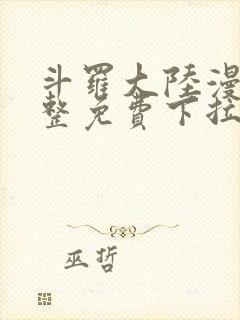 斗羅大陸漫
整免費下拉
巫哲